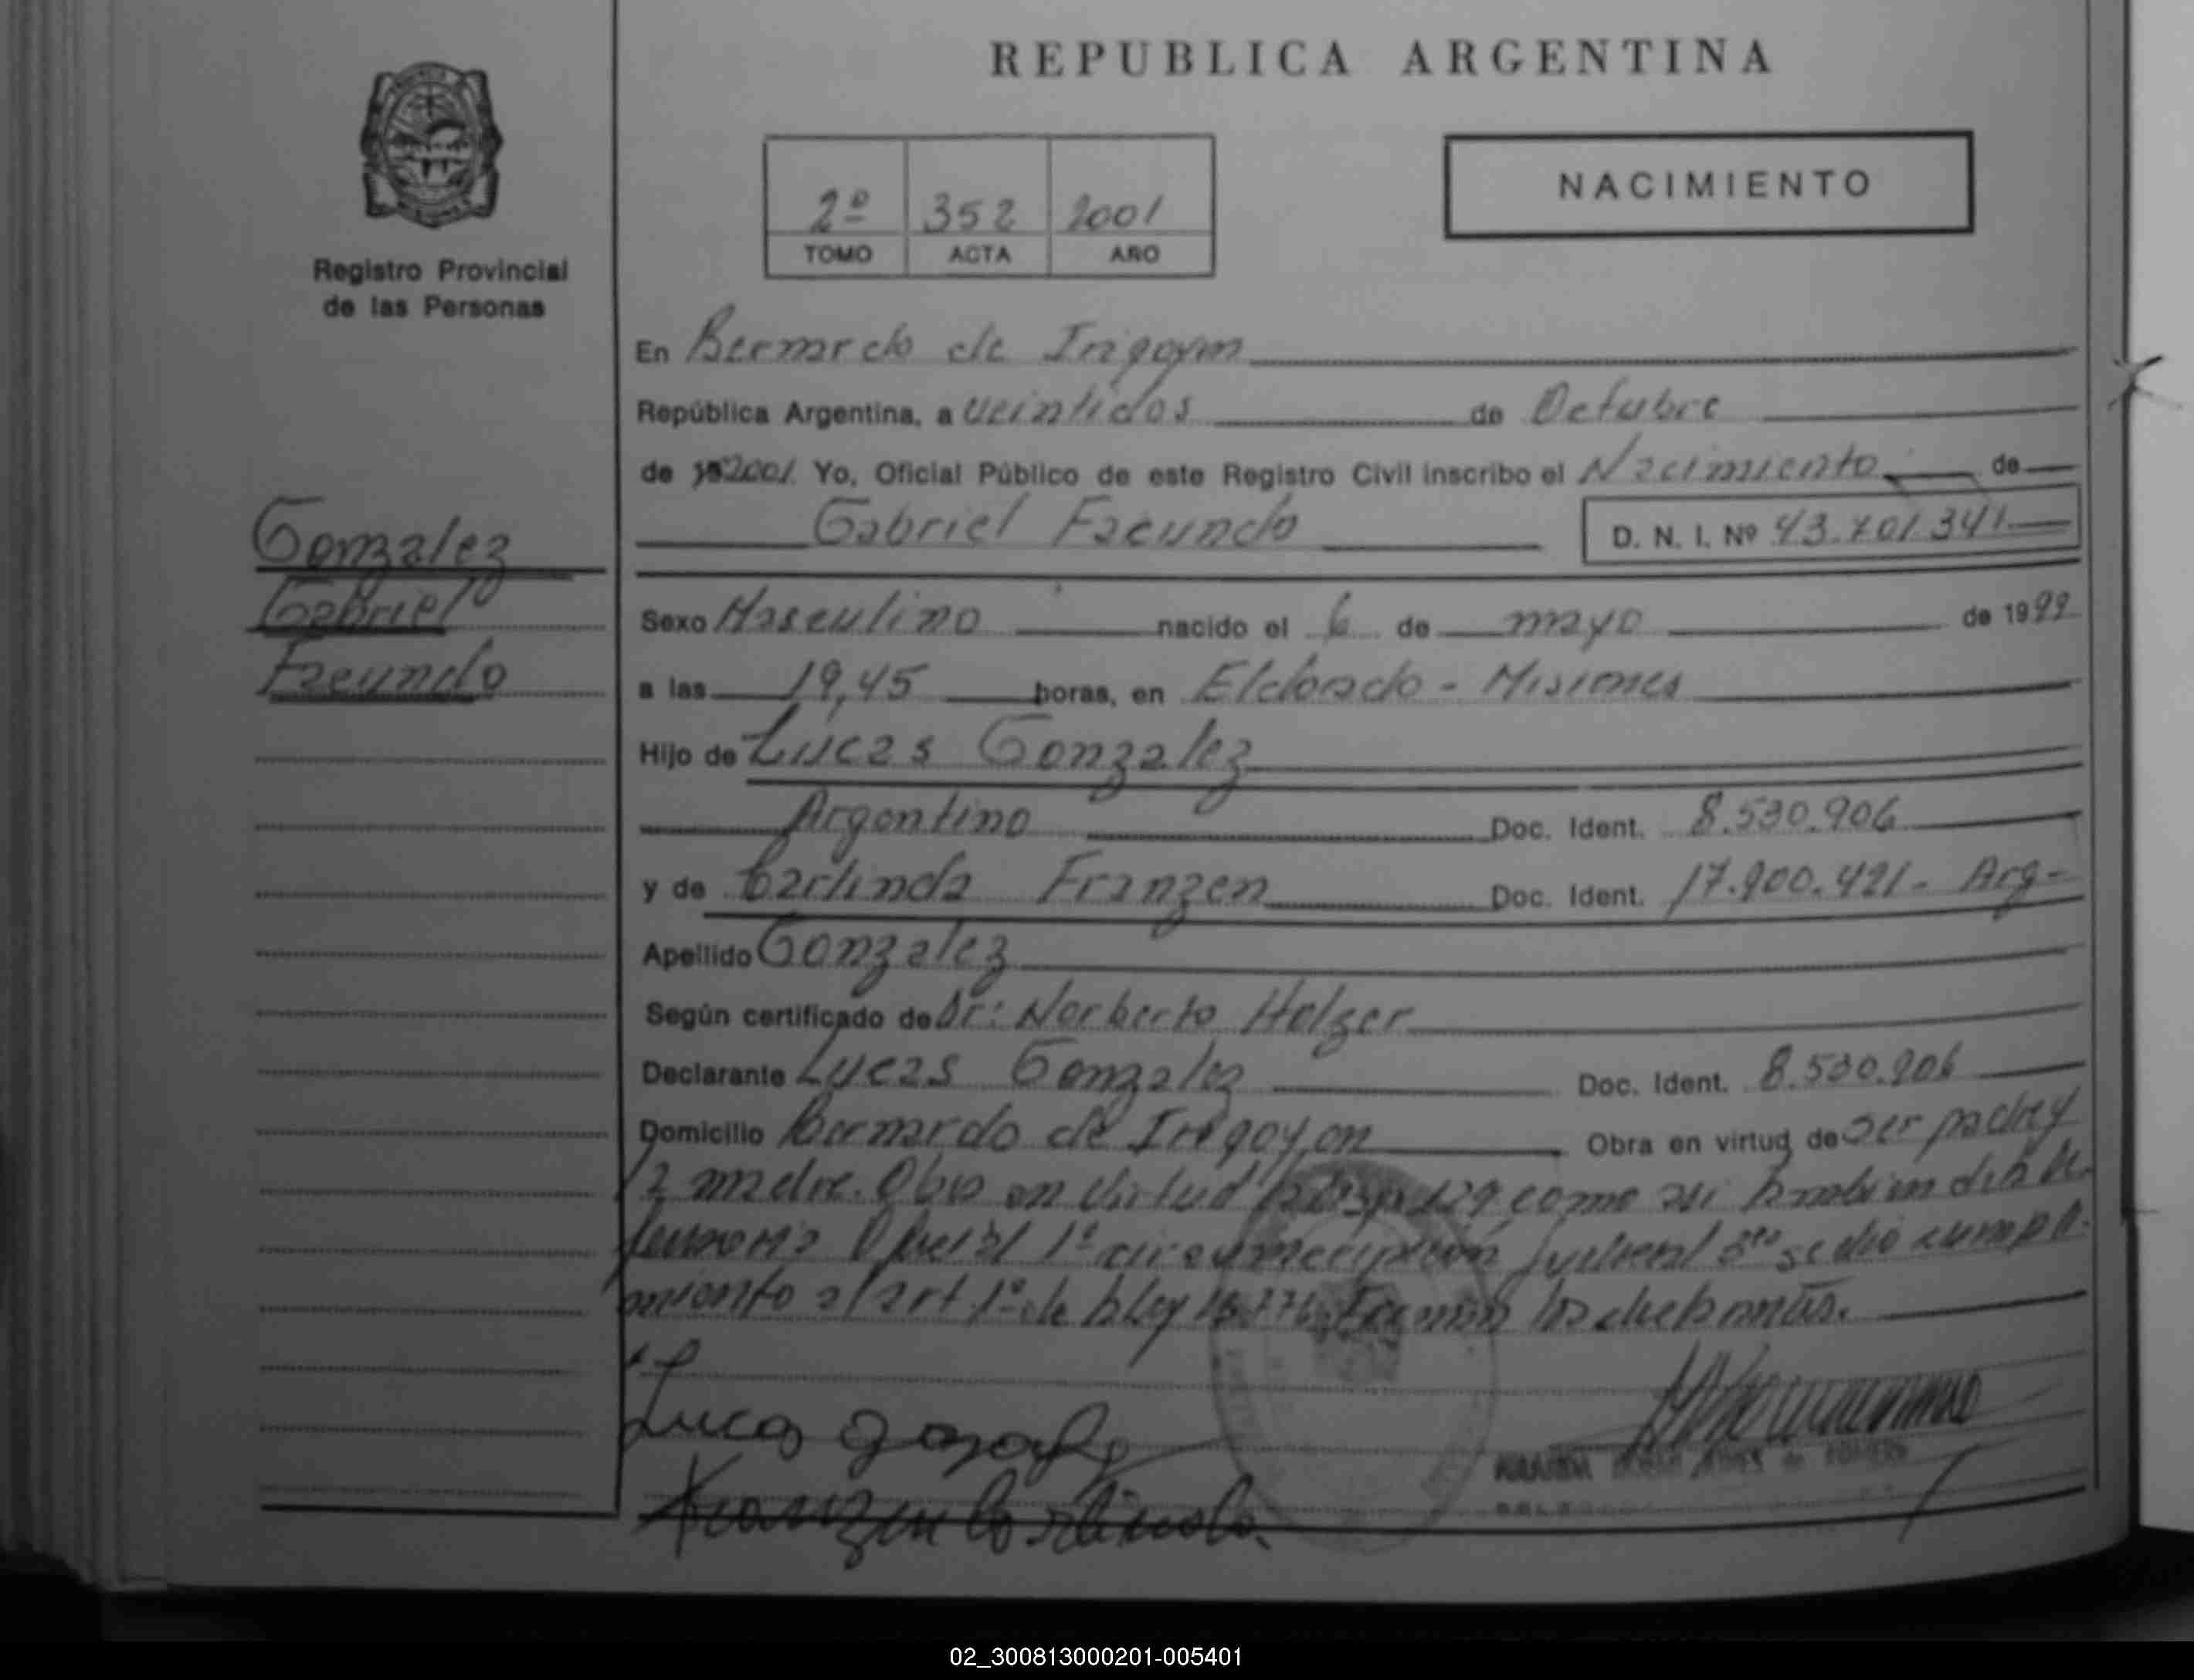 REPUBLICA ARGENTINA
NACIMIENTO
2º 352 2001
TOMO ACTA AÑO
Registro Provincial
de las Personas
En Bernardo de Irigoyen
República Argentina, a veintidos de Octubre
de 2001 Yo, Oficial Público de este Registro Civil inscribo el Nacimiento de
Gabriel Facundo D. N. I. Nº 43.701.341
Gonzalez
Gabriel
Facundo
Sexo Masculino nacido el 6 de mayo de 1999
a las 19,45 horas, en Eldorado - Misiones
Hijo de Lucas Gonzalez
Argentino Doc. Ident. 8.530.906
y de Carlinda Franzen Doc. Ident. 17.900.421- Arg-
Apellido Gonzalez
Según certificado de Dr: Norberto Holzer
Declarante Lucas Gonzalez Doc. Ident. 8.530.906
Domicilio Bernardo de Irigoyen Obra en virtud de ser padre y
madre. Obra en virtud como asi tambien de la
Oficial 1º circunscripción Judicial 3ro se dio cumpli-
miento al art. 1º de la ley Firman los declarantes.
Lucas
Franzen